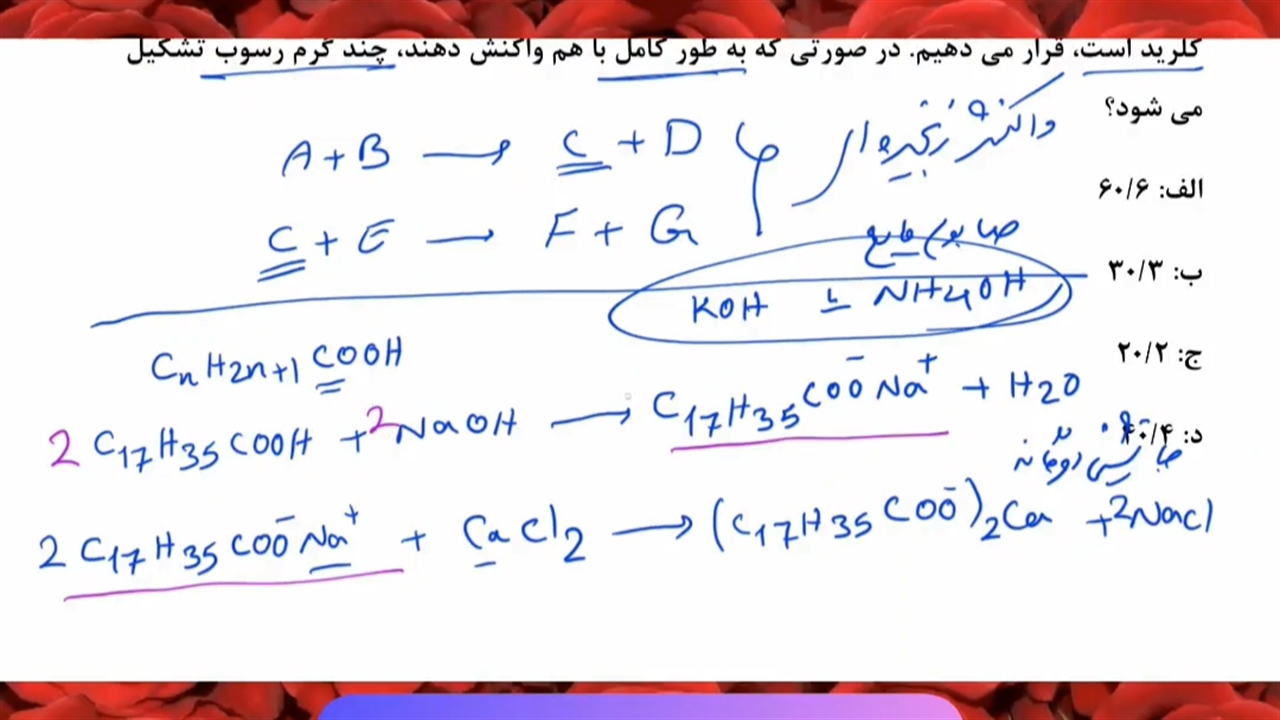 کلرید است، قرار می دهیم. در صورتی که به طور کامل با هم واکنش دهند، چند گرم رسوب تشکیل
می شود؟
A + B → C + D واکنش زنجیره ای
الف: ۶۰/۶
C + E → F + G
صابون مایع
ب: ۳۰/۳
KOH یا NH4OH
CnH2n+1COOH
ج: ۲۰/۲
2 C17H35COOH + 2NaOH → C17H35COO⁻Na⁺ + H2O
د: ۴۰/۴
جابه جایی دوگانه
2 C17H35COO⁻Na⁺ + CaCl2 → (C17H35COO⁻)2Ca + 2NaCl